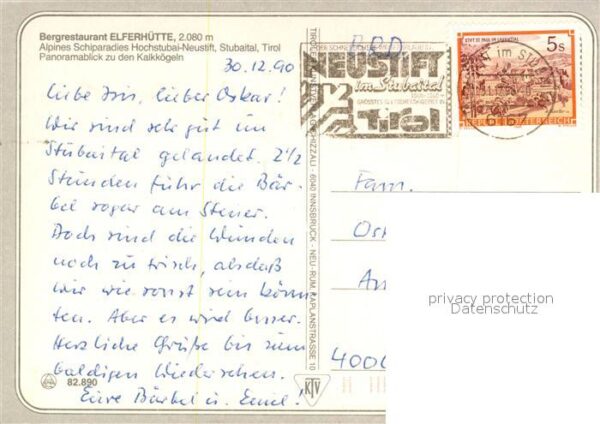 Bergrestaurant ELFERHÜTTE, 2.080 m
Alpines Schiparadies Hochstubai-Neustift, Stubaital, Tirol
Panoramablick zu den Kalkkögeln
30.12.90
Liebe Iris, lieber Oskar!
Wir sind sehr gut im
Stubaital gelandet. 2 1/2
Stunden fuhr die Bär-
bel sogar am Steuer.
Doch sind die Wunden
noch zu frisch, als daß
wir wie sonst sein könn-
ten. Aber es wird besser.
Herzliche Grüße bis zum
baldigen Wiedersehen.
Eure Bärbel u. Emil!
82.890
KTV
6040 INNSBRUCK - NEU-RUM, KAPLANSTRASSE 10
BRD
NEUSTIFT
im Stubaital
Tirol
5s
STIFT ST. PAUL IM LAVANTTAL
REPUBLIK ÖSTERREICH
Fam.
Ost
An
4000
privacy protection
Datenschutz